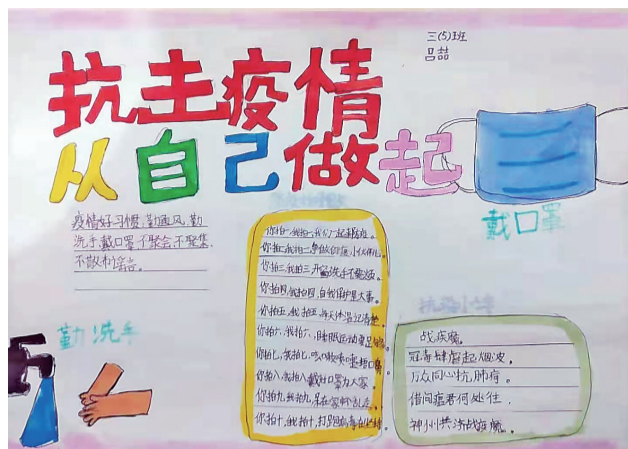 三(5)班
吕喆
抗击疫情
从自己做起
戴口罩
疫情好习惯,勤通风,勤
洗手,戴口罩,不聚会,不聚集,
不散布谣言。
勤洗手
你拍一,我拍一,我们一起
你拍二,我拍二,争做
你拍三,我拍三,开窗洗手不能
你拍四,我拍四,自我保护是大事。
你拍五,我拍五,每天体温记清楚。
你拍六,我拍六,睡眠运动要足够。
你拍七,我拍七,
你拍八,我拍八,戴好口罩为大家。
你拍九,我拍九,
你拍十,我拍十,打跑病毒
抗疫小诗
战疫魔
冠毒肆虐起烟波,
万众同心抗肺疴。
借问瘟君何处往,
神州共济战疫魔。